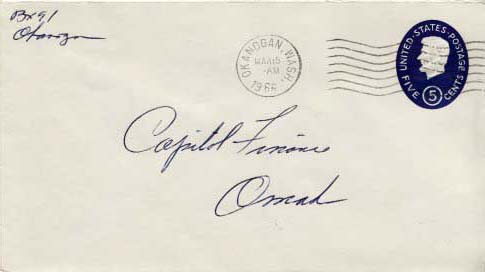 Bx 91
Okanogan
OKANOGAN, WASH.
MAR 15
-AM
1966
UNITED·STATES·POSTAGE
FIVE 5 CENTS
Capitol Finance
Omak